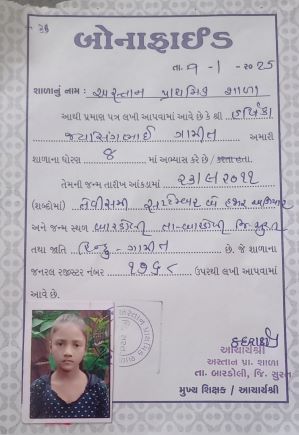 બોનાફાઈડ
તા. ૧ - ૧ - ૨૦૨૫
શાળાનું નામ : અસ્તાન પ્રાથમિક શાળા
આથી પ્રમાણ પત્ર લખી આપવામાં આવે છે કે શ્રી
જયસિંગભાઈ ગામીત અમારી
શાળાના ધોરણ ૪ માં અભ્યાસ કરે છે / કરતા હતા.
તેમની જન્મ તારીખ આંકડામાં ૨૩/૯/૨૦૧૧
(શબ્દોમાં) ત્રેવીસમી સપ્ટેમ્બર બે હજાર અગિયાર
અને જન્મ સ્થળ બારડોલી તા-બારડોલી જિ.સુરત
તથા જાતિ હિન્દુ - ગામીત છે. જે શાળાના
જનરલ રજીસ્ટર નંબર ૧૭૬૮ ઉપરથી લખી આપવામાં
આવે છે.
આચાર્યશ્રી
અસ્તાન પ્રા. શાળા
તા. બારડોલી, જિ. સુરત
મુખ્ય શિક્ષક / આચાર્યશ્રી